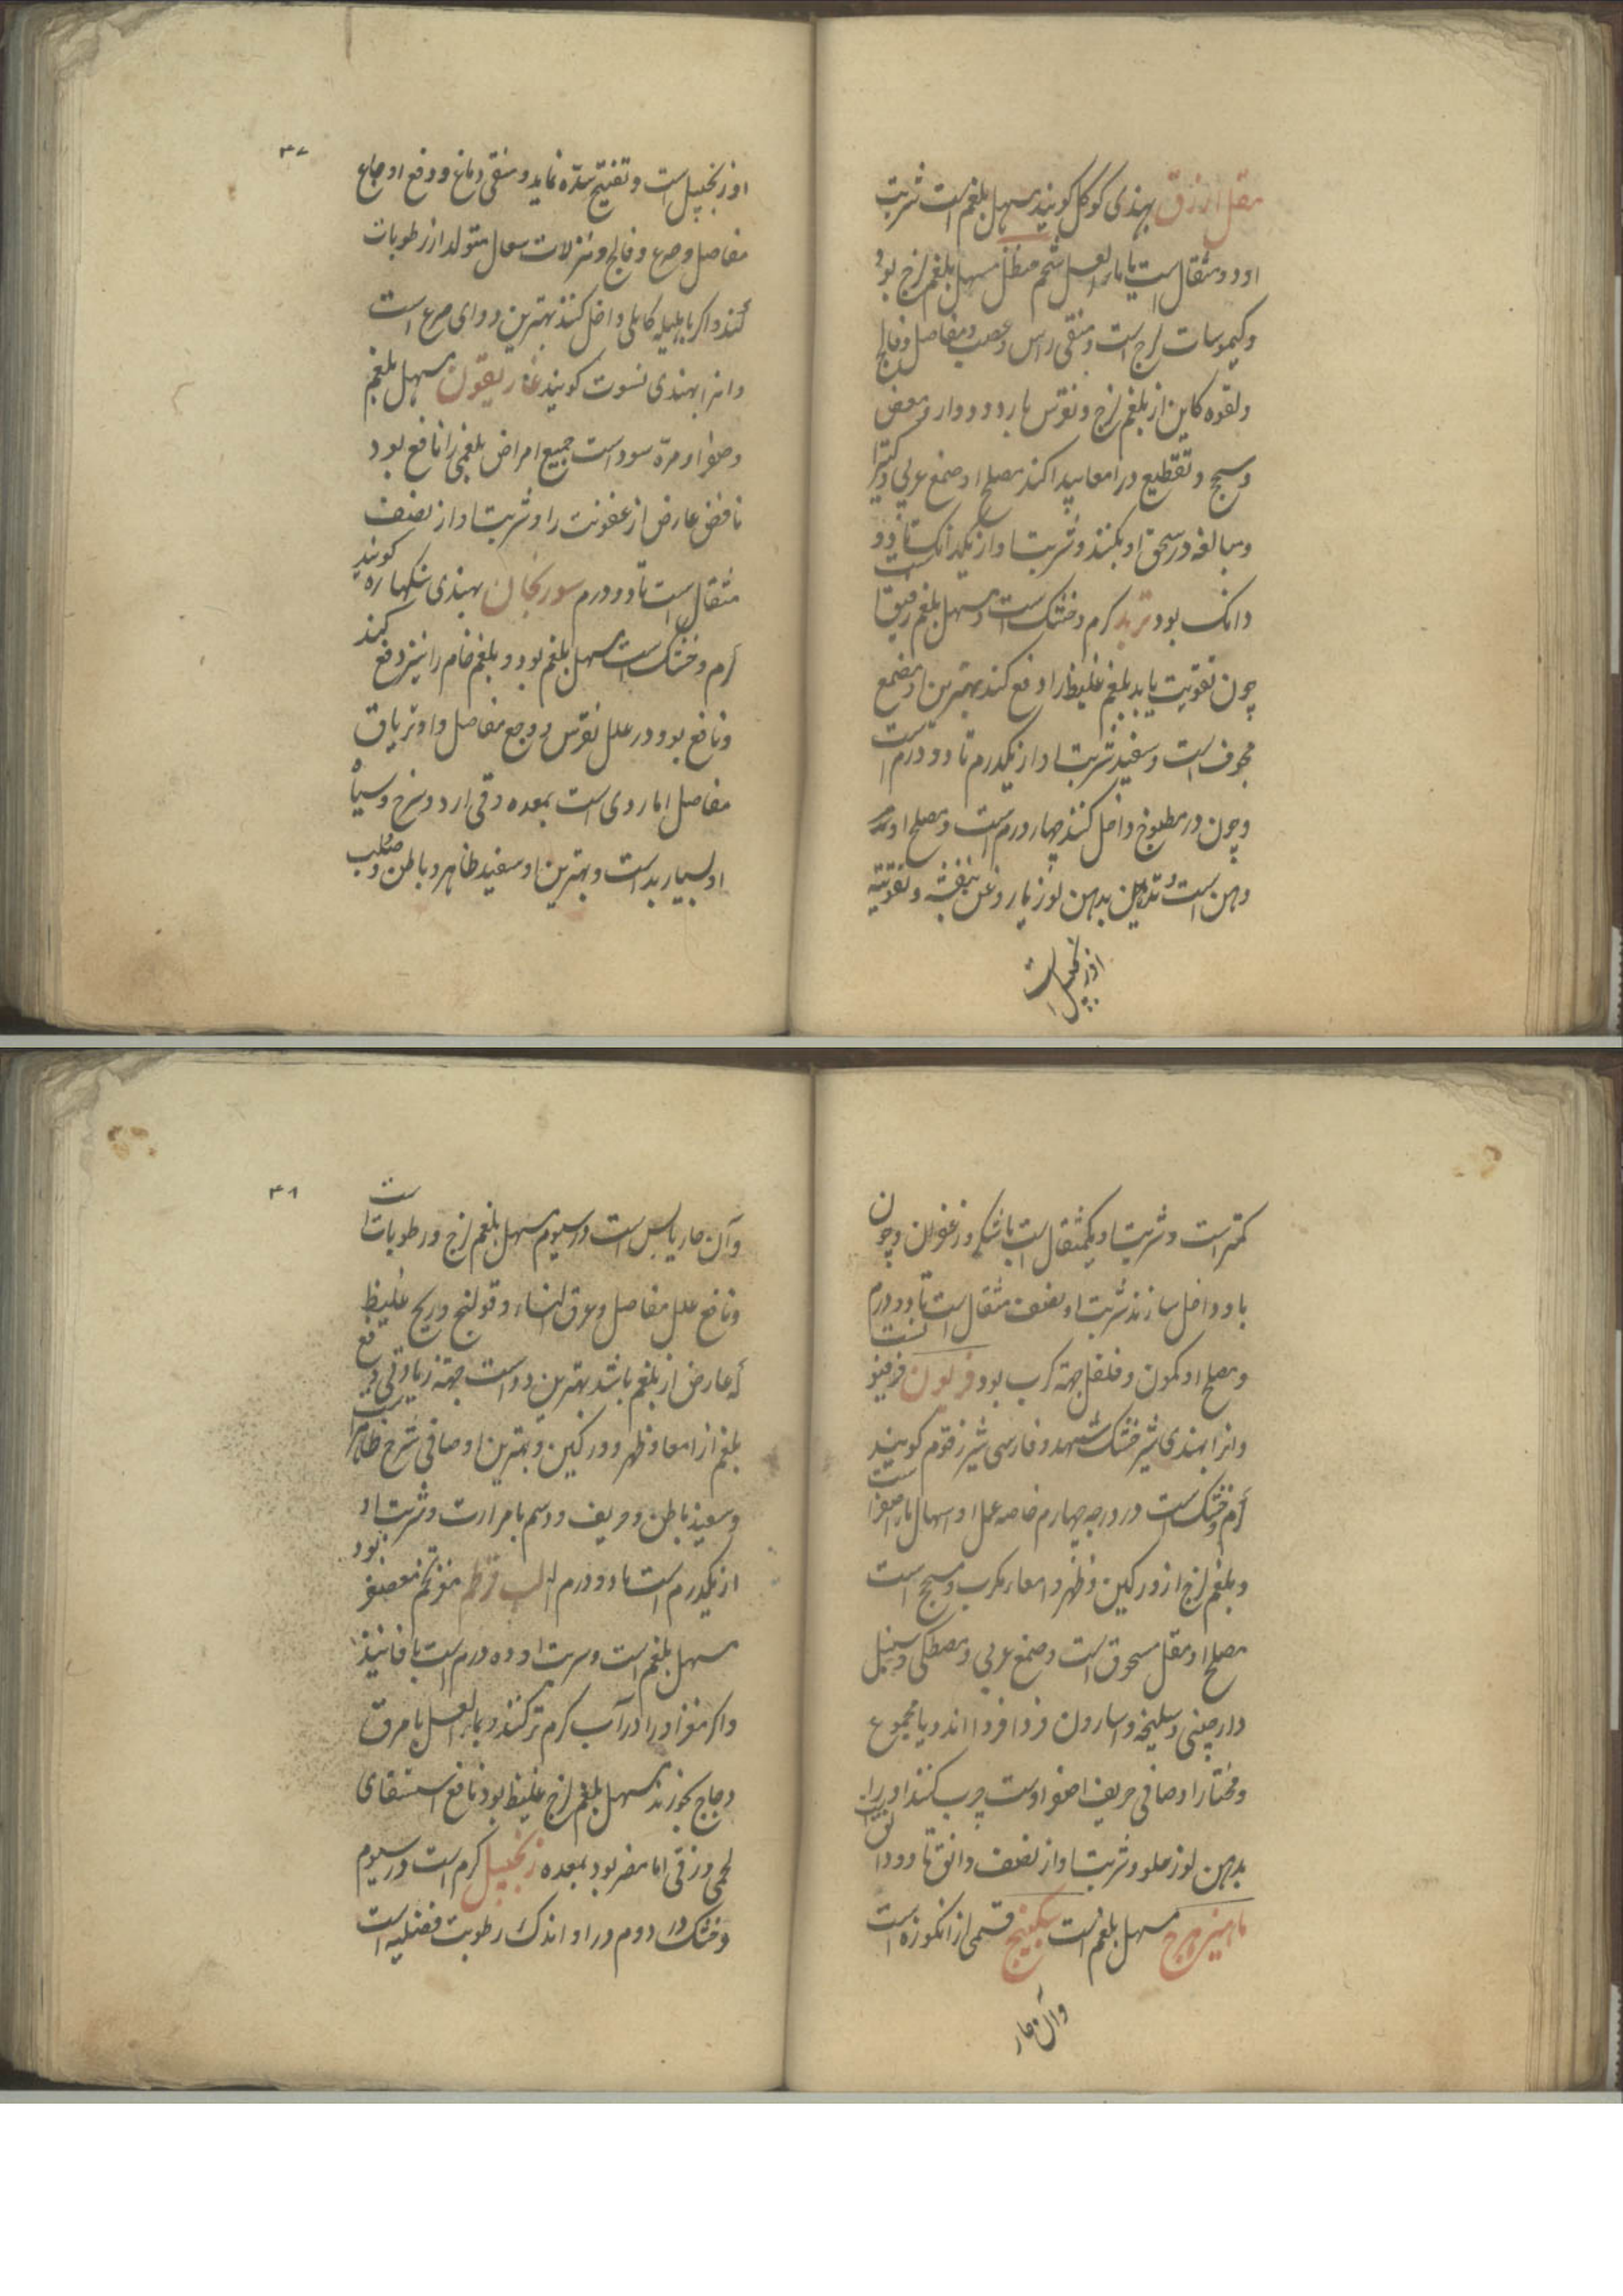 مقل ازرق بهندی کوکل کویند مسهل بلغم است شربت
او دو مثقال است با ماء العسل شحم حنظل مسهل بلغم لزج بود
وکیموسات لزج است و منقی راس و عصب و مفاصل و فالج
ولقوه کاین از بلغم لزج و نقرس بارد و دوار و مغص
وسحج وتقطیع در امعا پیدا کند مصلح او صمغ عربی وکتیرا
ومبالغه در سحق او بکنند وشربت او از یکدانک است تا دو
دانک بود تربد کرم وخشک است و مسهل بلغم رقیق است
چون تقویت یابد بلغم غلیظ را دفع کند بهترین او مصمغ
مجوف است وسفید شربت او از یکدرم تا دو درم است
وچون در مطبوخ داخل کنند چهار درم است ومصلح او
دهن است وتدهین بدهن لوز یا روغن بنفشه وتقویته
او زنجبیل است
۳۷
او زنجبیل است و تفتیح سده نماید ومنقی دماغ ودفع اوجاع
مفاصل وصرع وفالج ونزلات سعال متولد از رطوبات
کند واکر با هلیله کابلی داخل کنند بهترین دوای صرع است
وانرا بهندی نسوت کویند غاریقون مسهل بلغم
وصفرا ومره سودا است جمیع امراض بلغمی را نافع بود
نافض عارض از عفونت را وشربت او از نصف
مثقال است تا دو درم سورنجان بهندی سنکهاره کویند
کرم وخشک است مسهل بلغم بود وبلغم خام را نیز دفع کند
ونافع بود در علل نقرس ووجع مفاصل واو تریاق
مفاصل اما ردی است بمعده وقی ارد وسرخ وسیاه
او بسیار بد است وبهترین او سفید ظاهر وباطن وصلب
کمتر است وشربت او یکمثقال است با شکر وزعفران وچون
با دوا داخل سازند شربت او نصف مثقال است تا دو درم
ومصلح او کمون وفلفل جهة کرب بود فربیون
وانرا بهندی شیر خشک سیهند وفارسی شیر زقوم کویند
کرم وخشک است در درجه چهارم خاصه عمل او اسهال ماء اصفر است
وبلغم لزج از ورکین وظهر وامعا مکرب ومسحج است
مصلح او مقل مسحوق است وصمغ عربی ومصطکی وسنبل
دارچینی وسلیخه واسارون فردا فردا اند ویا مجموع
ومختار او صافی حریف اصفر اوست چرب کنند او را
بدهن لوز حلو وشربت او از نصف دانق تا دو دانق است
ماهیزهرج مسهل بلغم است سکبینج قسمی از انکوزه است
وآن حار
۳۸
وآن حار یابس است در سیوم مسهل بلغم لزج ورطوبات است
ونافع علل مفاصل وعرق النساء وقولنج وریح غلیظ
که عارض از بلغم باشد بهترین دوا است جهة زیادتی دفع
بلغم از امعا وظهر وورکین وبهترین او صافی سرخ ظاهر
وسفید باطن وحریف ودسم با مرارت وشربت او
از یکدرم است تا دو درم بود لب قرطم مغز تخم معصفر
مسهل بلغم است وشربت او ده درم است با فانیذ
واکر مغز او را در آب کرم تر کنند وبماء العسل یا مرق
دجاج بخورند مسهل بلغم لزج غلیظ بود نافع استسقای
لحمی وزقی اما مضر بود بمعده زنجبیل کرم است در سیوم
وخشک در دوم ودر او اندک رطوبت فضلیه است